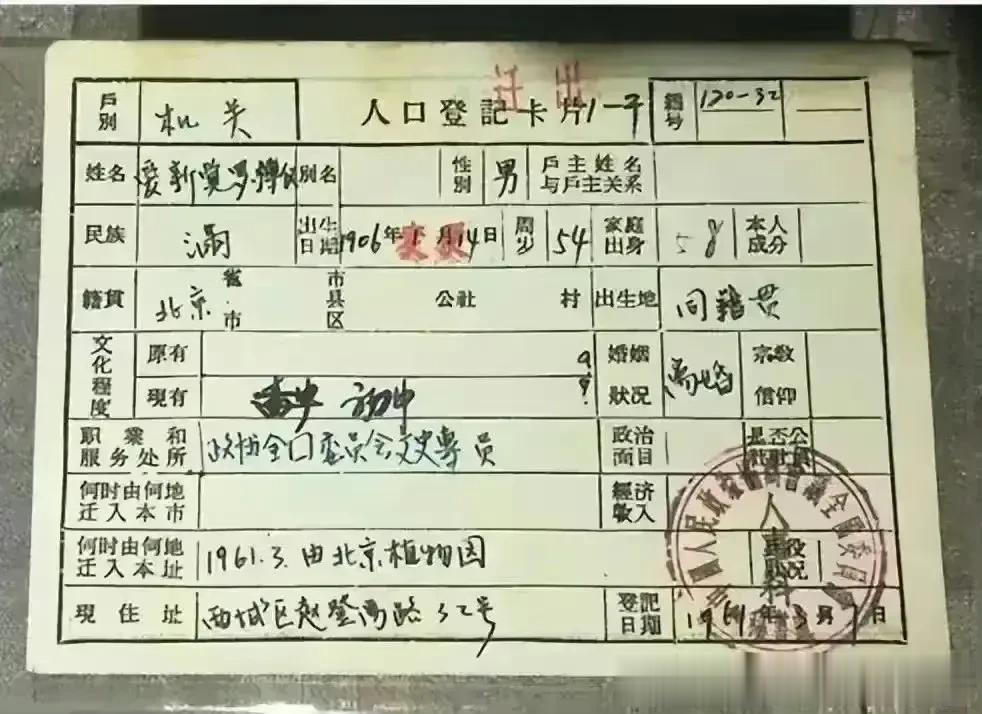 迁出
戶別 机关 人口登記卡片1-平 編号 120-32
姓名 爱新觉罗·溥仪 别名 性别 男 戶主姓名与戶主关系
民族 满 出生日期 1906年 变更 月14日 周岁 54 家庭出身 本人成分
籍貫 北京 省市 市县区 公社 村 出生地 同籍贯
文化程度 原有 婚姻狀况 离婚 宗敎信仰
現有 初中
职業和服务处所 政协全国委员会文史專员 政治面目 是否公社社員
何时由何地迁入本市 經济收入
何时由何地迁入本址 1961.3.由北京植物园 兵役狀况
現住址 西城区赵登禹路32号 登記日期 1961年3月 日
人事科